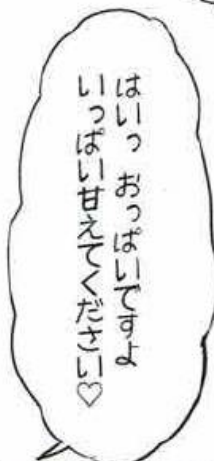 はいっ おっぱいですよ
いっぱい甘えてください♡